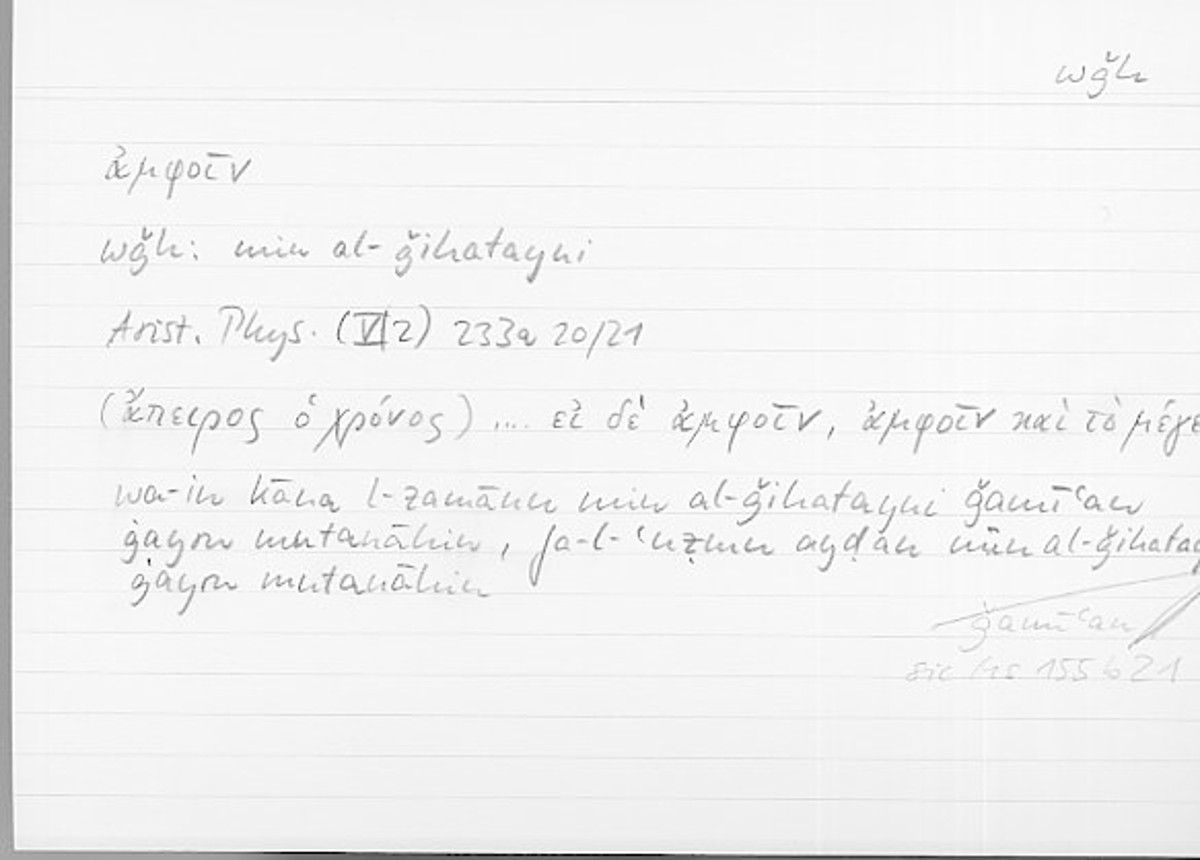 wǧh
ἀμφοῖν
wǧh: min al-ǧihatayni
Arist. Phys. (VI 2) 233a 20/21
(ἄπειρος ὁ χρόνος) .... εἰ δὲ ἀμφοῖν, ἀμφοῖν καὶ τὸ μέγε
wa-in kāna l-zamānu min al-ǧihatayni ǧamīʿan
ġayra mutanāhin, fa-l-ʿuẓmu ayḍan min al-ǧihatay
ġayru mutanāhin
ǧamīʿan
sic Hs 155 b 21